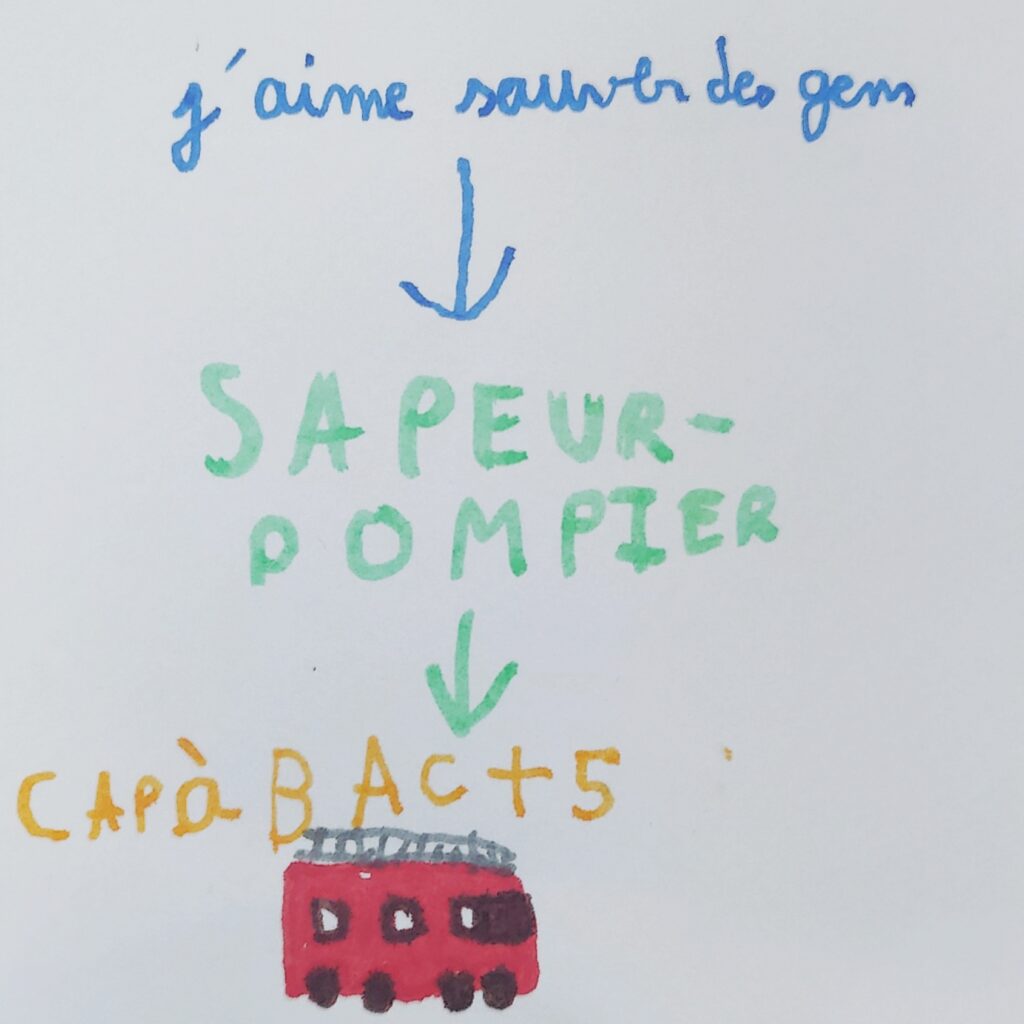 j'aime sauver des gens
SAPEUR-
POMPIER
CAP à BAC+5